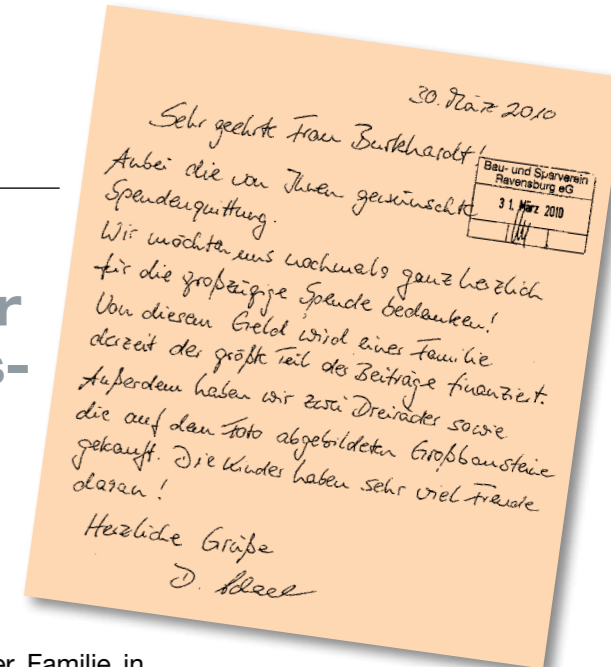 30. März 2010
Sehr geehrte Frau Burkhardt!
Bau- und Sparverein
Ravensburg eG
31. März 2010
Anbei die von Ihnen gewünschte
Spendenquittung.
Wir möchten uns nochmals ganz herzlich
für die großzügige Spende bedanken!
Von diesem Geld wird einer Familie
derzeit der größte Teil der Beiträge finanziert.
Außerdem haben wir zwei Dreiräder sowie
die auf dem Foto abgebildeten Großbausteine
gekauft. Die Kinder haben sehr viel Freude
daran!
Herzliche Grüße
D.
r
s-
er Familie in